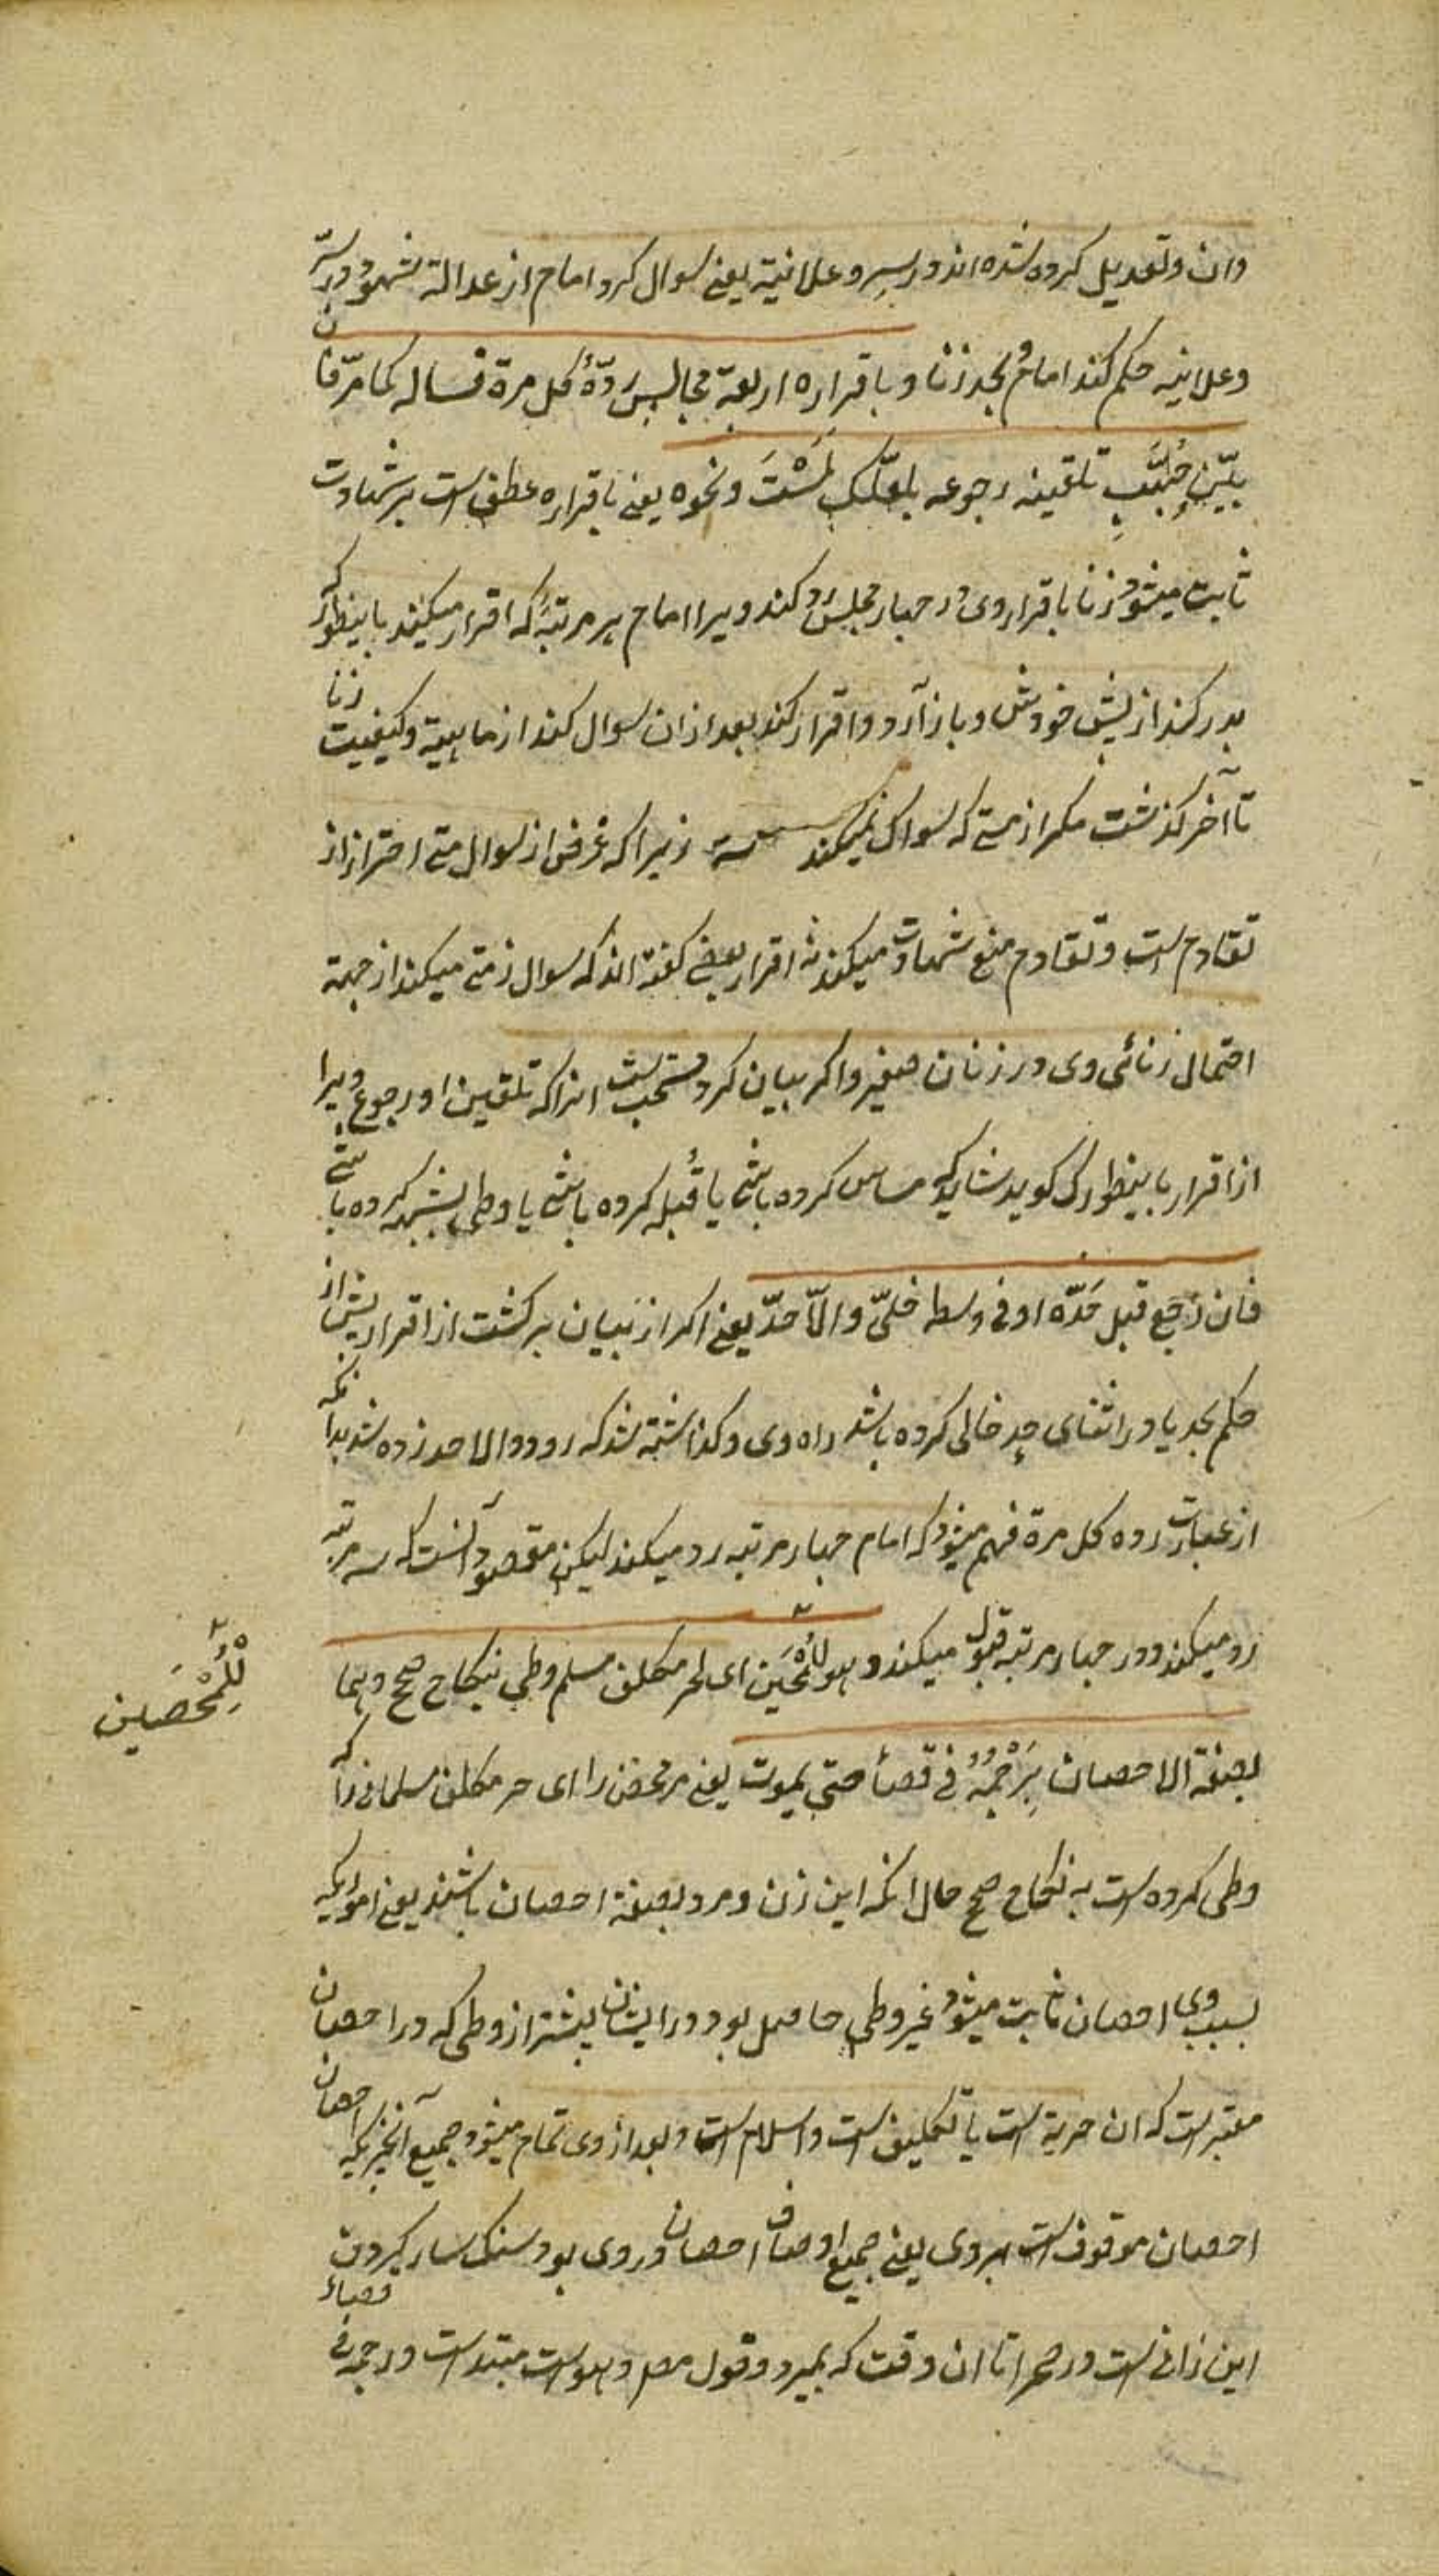 وان وتعدیل کرده شده اند در سر و علانیة یعنی سوال کرد امام از عدالة شهود در سرّ
وعلانیه حکم کند امام بحد زنا و باقراره اربعة مجالس ردّهُ کل مرة فساله کما مرّ فان
بیّن حُبِّبَ تلقینه رجوعه بلعلّک لَمَسْتَ ونحوه یعنی باقراره عطف است بر شهادت
ثابت میشود زنا باقرار وی در چهار مجلس رد کند ویرا امام هر مرتبهٔ که اقرار میکند باینطور که
بدر کند از پیش خودش و باز آرد و اقرار کند بعد ازان سوال کند از ماهیة وکیفیت زنا
تا آخر گذشت مگر از متی که سوال نمیکند زیرا که غرض از سوال متی احتراز از
تقادم است وتقادم منع شهادت میکند نه اقرار بعضی گفته اند که سوال زمتی میکند از جهة
احتمال زنائی وی در زنان صغیر واگر بیان کرد مستحب است انرا که تلقین او رجوع ویرا
از اقرار باینطور که گوید شاید که مساس کرده باشی یا قُبله کرده باشی یا وطی بشبهه کرده باشی
فان رجع قبل حَدّه او فی وسطه خلیّ والّا حدّ یعنی اگر از بیان برگشت از اقرار پیش از
حکم بحد یا در اثنای حد خالی کرده باشد راه وی و گذاشته شد که رود والا حد زده شد بدانکه
از عبارت رده کل مرة فهم میشود که امام چهار مرتبه رد میکند لیکن مقصود آنست که سه مرتبه
رد میکند و در چهار مرتبه قبول میکند وهو للمُحْصَین ای لحر مکلف مسلم وطی بنکاح صحیح وهما
بصفة الاحصان بِرَجْمِهُ فی فضأ حتی یموت یعنی مر محصن را ای حر مکلف مسلمانی را که
وطی کرده است به نکاح صحیح حال انکه این زن و مرد بصفة احصان باشند یعنی اموریکه
بسبب وی احصان ثابت میشود غیر وطی حاصل بود در ایشان پیشتر از وطی که در احصان
معتبر است که ان حریة است یا تکلیف است واسلام است وبعد از وی تمام میشود جمیع آنچیزیکه احصان
احصان موقوف است بروی یعنی جمیع اوصاف احصان در وی بود سنک سار کردن
این زانی است در صحرا تا ان وقت که بمیرد وقول مص وهو است مبتداست ورجمه فی فضاء
للمُحْصَین